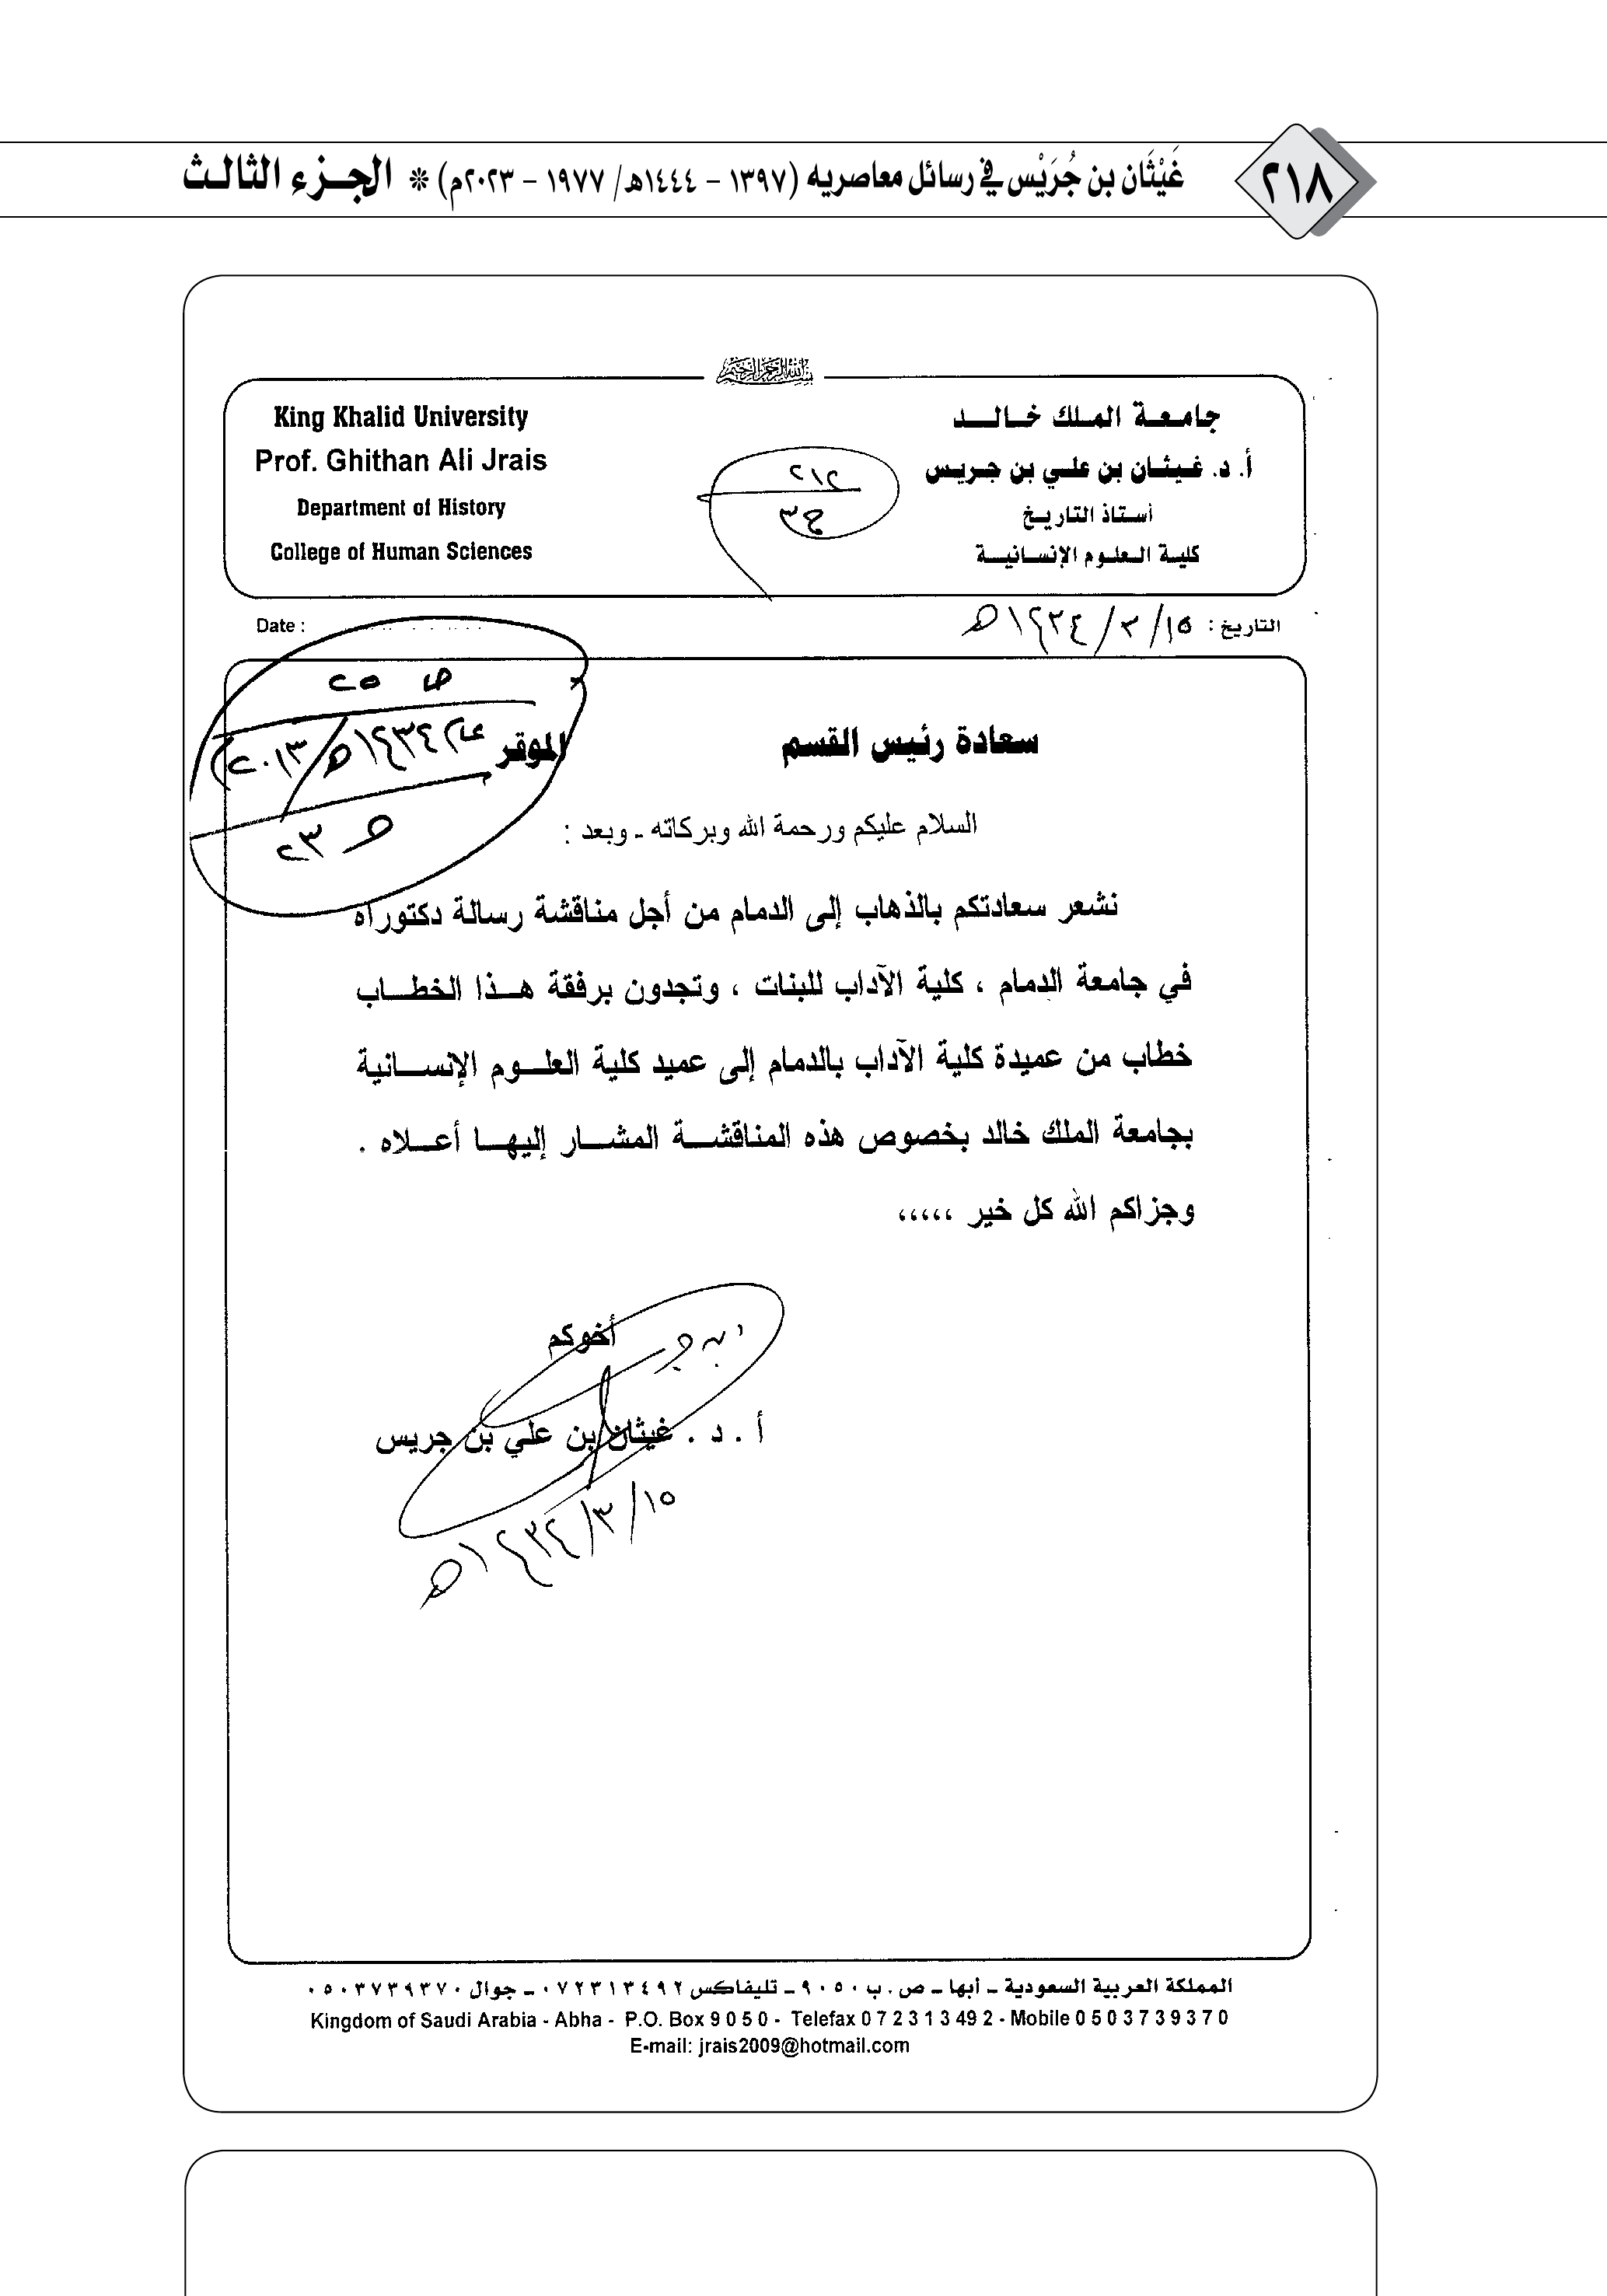 ٢١٨
غَيْثَان بن جُرَيْس في رسائل معاصريه (١٣٩٧ – ١٤٤٤هـ/ ١٩٧٧ – ٢٠٢٣م) * الجزء الثالث
بسم الله الرحمن الرحيم
جامعة الملك خالد
أ. د. غيثان بن علي بن جريس
أستاذ التاريخ
كلية العلوم الإنسانية
٢١٢
ج٣
King Khalid University
Prof. Ghithan Ali Jrais
Department of History
College of Human Sciences
التاريخ : ١٥/ ٣ / ١٤٣٤هـ
Date :
ص ٢٥
عام ١٤٣٤هـ/ ٢٠١٣م
ص ٢٣
سعادة رئيس القسم الموقر
السلام عليكم ورحمة الله وبركاته - وبعد :
نشعر سعادتكم بالذهاب إلى الدمام من أجل مناقشة رسالة دكتوراه
في جامعة الدمام ، كلية الآداب للبنات ، وتجدون برفقة هذا الخطاب
خطاب من عميدة كلية الآداب بالدمام إلى عميد كلية العلوم الإنسانية
بجامعة الملك خالد بخصوص هذه المناقشة المشار إليها أعلاه .
وجزاكم الله كل خير ،،،،،
أخوكم
أ . د . غيثان بن علي بن جريس
١٥/ ٣/ ١٤٣٤هـ
المملكة العربية السعودية ـ أبها ـ ص . ب ٩٠٥٠ ـ تليفاكس ٠٧٢٣١٣٤٩٢ ـ جوال ٠٥٠٣٧٣٩٣٧٠
Kingdom of Saudi Arabia - Abha - P.O. Box 9 0 5 0 - Telefax 0 7 2 3 1 3 49 2 - Mobile 0 5 0 3 7 3 9 3 7 0
E-mail: jrais2009@hotmail.com